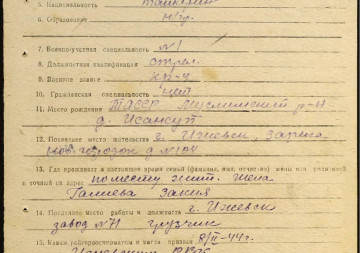 5. Национальность татарин
6. Образование н/ср.
7. Военно-учетная специальность №1
8. Должностная квалификация стрел.
9. Военное звание кр-ц
10. Гражданская специальность
11. Место рождения ТАССР Муслимский р-н
д. Исансуп
12. Последнее место жительства г. Ижевск,
городок д №104
13. Где проживает в настоящее время семья (фамилия, имя, отчество) жены или родителей
и точный их адрес по месту жит. жена
Галиева Закия
14. Последнее место работы и должность г. Ижевск
завод №71 грузчик
15. Каким райгорвоенкоматом и когда призван 8/II-44г.